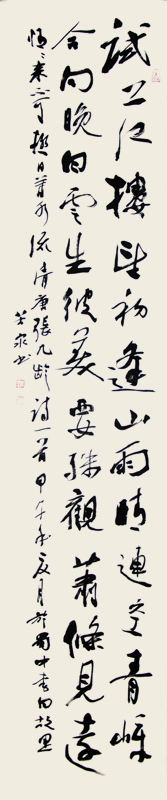 試上江樓望初逢山雨晴連空青嶂
合向晚白雲生彼美要殊觀蕭條見遠
情〻來不可極日暮水流清唐張九齡詩一首甲午年夏月於蜀中
書